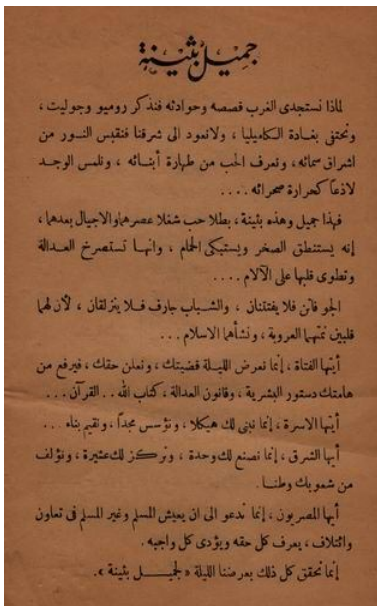 جميل بثينة
لماذا نستجدى الغرب قصصه وحوادثه فنذكر روميو وجوليت ،
ونحتفى بغادة الكاميليا ، ولانعود الى شرقنا فنقبس النور من
اشراق سمائه، ونعرف الحب من طهارة أبنائه ، ونلمس الوجد
لاذعاً كحرارة صحرائه ....
فهذا جميل وهذه بثينة ، بطلا حب شغلا عصرهما والاجيال بعدهما،
إنه يستنطق الصخر ويستبكى الحمام ، وانها تستصرخ العدالة
وتطوى قلبها على الآلام ....
الجو فاتن فلا يفتتنان ، والشباب جارف فلا ينزلقان ، لأن لهما
قلبين نمتهما العروبة ، ونشأهما الاسلام ...
أيتها الفتاة ، إنما نعرض الليلة قضيتك ، ونعلن حقك ، فيرفع من
هامتك دستور البشرية ، وقانون العدالة ، كتاب الله .. القرآن ...
أيتها الاسرة ، إنما نبنى لك هيكلا ، ونؤسس مجداً ، ونقيم بناء ...
أيها الشرق ، إنما نصنع لك وحدة ، ونركز لك عشيرة ، ونؤلف
من شعوبك وطنا .
أيها المصريون ، إنما ندعو الى ان يعيش المسلم وغير المسلم فى تعاون
وائتلاف ، يعرف كل حقه ويؤدى كل واجبه .
إنما نحقق كل ذلك بعرضنا الليلة « لجميل بثينة » .